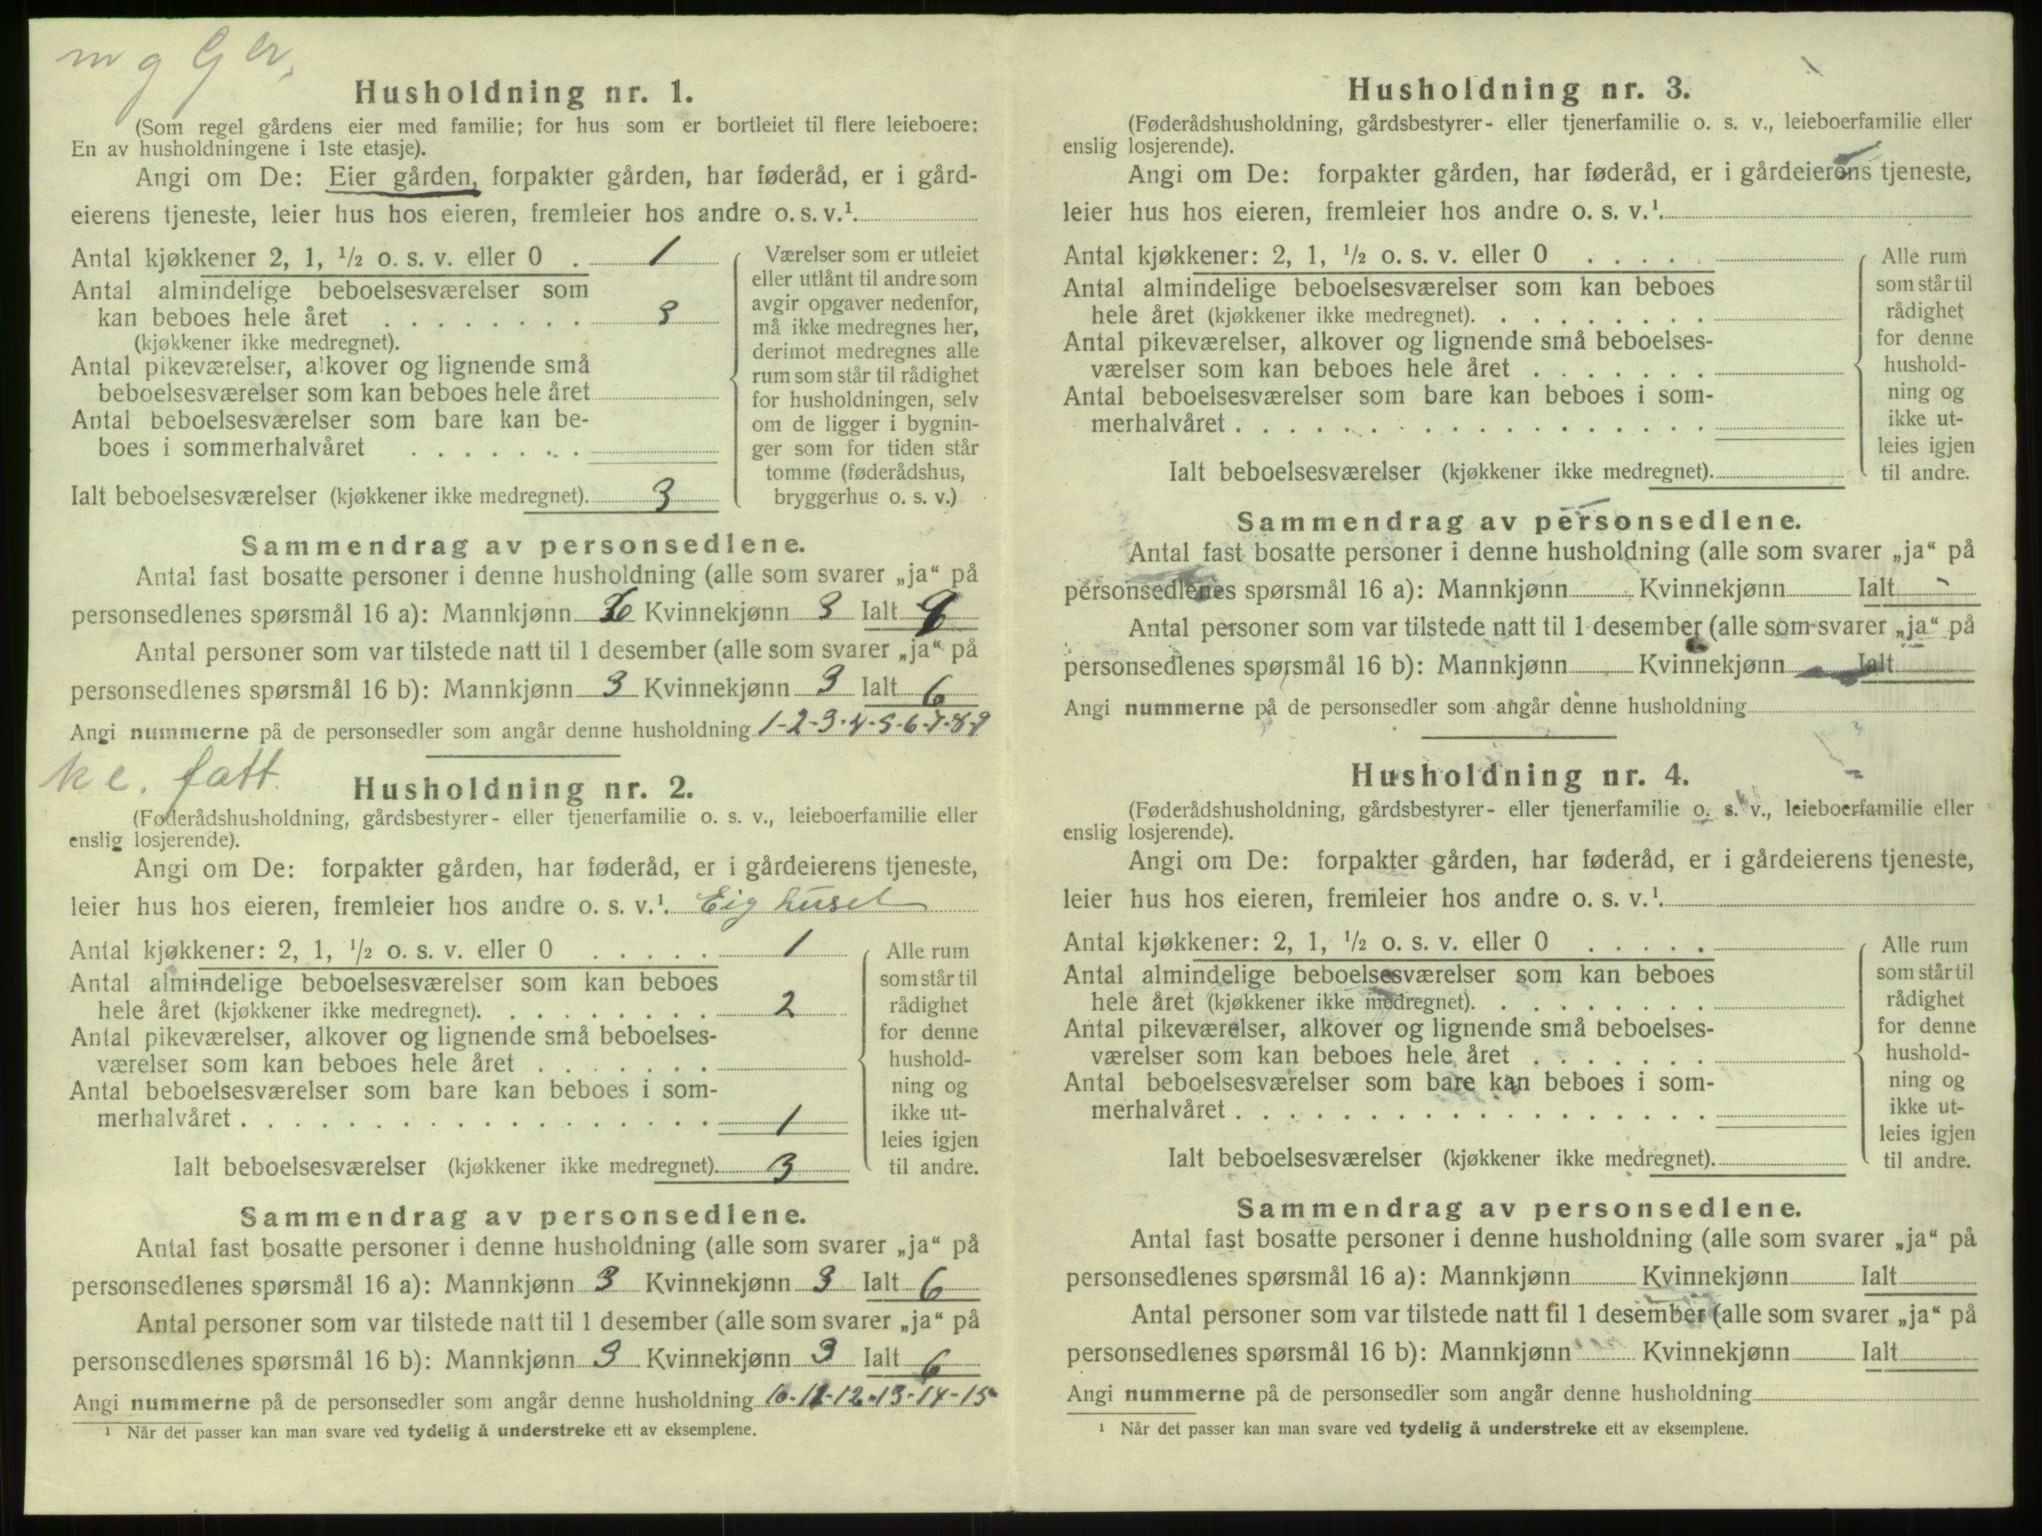 Husholdning nr. 1.
(Som regel gårdens eier med familie; for hus som er bortleiet til flere leieboere:
En av husholdningene i 1ste etasje).
Angi om De: Eier gården, forpakter gården, har føderåd, er i gård-
eierens tjeneste, leier hus hos eieren, fremleier hos andre o. s. v.¹.
Antal kjøkkener 2, 1, ½ o. s. v. eller 0 . 1
Antal almindelige beboelsesværelser som
kan beboes hele året . . . . . . . . 3
(kjøkkener ikke medregnet).
Antal pikeværelser, alkover og lignende små
beboelsesværelser som kan beboes hele året
Antal beboelsesværelser som bare kan be-
boes i sommerhalvåret . . . . . . .
Ialt beboelsesværelser (kjøkkener ikke medregnet). 3
Værelser som er utleiet
eller utlånt til andre som
avgir opgaver nedenfor,
må ikke medregnes her,
derimot medregnes alle
rum som står til rådighet
for husholdningen, selv
om de ligger i bygnin-
ger som for tiden står
tomme (føderådshus,
bryggerhus o. s. v.)
Sammendrag av personsedlene.
Antal fast bosatte personer i denne husholdning (alle som svarer „ja“ på
personsedlenes spørsmål 16 a): Mannkjønn 6 Kvinnekjønn 3 Ialt 9
Antal personer som var tilstede natt til 1 desember (alle som svarer „ja“ på
personsedlenes spørsmål 16 b): Mannkjønn 3 Kvinnekjønn 3 Ialt 6
Angi nummerne på de personsedler som angår denne husholdning 1-2-3-4-5-6-7-8-9
fatt.
Husholdning nr. 2.
(Føderådshusholdning, gårdsbestyrer- eller tjenerfamilie o. s. v., leieboerfamilie eller
enslig losjerende).
Angi om De: forpakter gården, har føderåd, er i gårdeierens tjeneste,
leier hus hos eieren, fremleier hos andre o. s. v.¹. Eig huset
Antal kjøkkener: 2, 1, ½ o. s. v. eller 0 . . . . . 1
Antal almindelige beboelsesværelser som kan beboes
hele året (kjøkkener ikke medregnet). . . . . . . . . 2
Antal pikeværelser, alkover og lignende små beboelses-
værelser som kan beboes hele året . . . . . . .
Antal beboelsesværelser som bare kan beboes i som-
merhalvåret . . . . . . . . . . . . . . . . . . 1
Ialt beboelsesværelser (kjøkkener ikke medregnet). 3
Alle rum
som står til
rådighet
for denne
hushold-
ning og
ikke ut-
leies igjen
til andre.
Sammendrag av personsedlene.
Antal fast bosatte personer i denne husholdning (alle som svarer „ja“ på
personsedlenes spørsmål 16 a): Mannkjønn 3 Kvinnekjønn 3 Ialt 6
Antal personer som var tilstede natt til 1 desember (alle som svarer „ja“ på
personsedlenes spørsmål 16 b): Mannkjønn 3 Kvinnekjønn 3 Ialt 6
Angi nummerne på de personsedler som angår denne husholdning 10-11-12-13-14-15
¹ Når det passer kan man svare ved tydelig å understreke ett av eksemplene.
Husholdning nr. 3.
(Føderådshusholdning, gårdsbestyrer- eller tjenerfamilie o. s. v., leieboerfamilie eller
enslig losjerende).
Angi om De: forpakter gården, har føderåd, er i gårdeierens tjeneste,
leier hus hos eieren, fremleier hos andre o. s. v.¹.
Antal kjøkkener: 2, 1, ½ o. s. v. eller 0 . . . . .
Antal almindelige beboelsesværelser som kan beboes
hele året (kjøkkener ikke medregnet). . . . . . . . .
Antal pikeværelser, alkover og lignende små beboelses-
værelser som kan beboes hele året . . . . . . .
Antal beboelsesværelser som bare kan beboes i som-
merhalvåret . . . . . . . . . . . . . . . . . .
Ialt beboelsesværelser (kjøkkener ikke medregnet).
Alle rum
som står til
rådighet
for denne
hushold-
ning og
ikke ut-
leies igjen
til andre.
Sammendrag av personsedlene.
Antal fast bosatte personer i denne husholdning (alle som svarer „ja“ på
personsedlenes spørsmål 16 a): Mannkjønn Kvinnekjønn Ialt
Antal personer som var tilstede natt til 1 desember (alle som svarer „ja“ på
personsedlenes spørsmål 16 b): Mannkjønn Kvinnekjønn Ialt
Angi nummerne på de personsedler som angår denne husholdning
Husholdning nr. 4.
(Føderådshusholdning, gårdsbestyrer- eller tjenerfamilie o. s. v., leieboerfamilie eller
enslig losjerende).
Angi om De: forpakter gården, har føderåd, er i gårdeierens tjeneste,
leier hus hos eieren, fremleier hos andre o. s. v.¹.
Antal kjøkkener: 2, 1, ½ o. s. v. eller 0 . . . . .
Antal almindelige beboelsesværelser som kan beboes
hele året (kjøkkener ikke medregnet). . . . . . . . .
Antal pikeværelser, alkover og lignende små beboelses-
værelser som kan beboes hele året . . . . . . .
Antal beboelsesværelser som bare kan beboes i som-
merhalvåret . . . . . . . . . . . . . . . . . .
Ialt beboelsesværelser (kjøkkener ikke medregnet).
Alle rum
som står til
rådighet
for denne
hushold-
ning og
ikke ut-
leies igjen
til andre.
Sammendrag av personsedlene.
Antal fast bosatte personer i denne husholdning (alle som svarer „ja“ på
personsedlenes spørsmål 16 a): Mannkjønn Kvinnekjønn Ialt
Antal personer som var tilstede natt til 1 desember (alle som svarer „ja“ på
personsedlenes spørsmål 16 b): Mannkjønn Kvinnekjønn Ialt
Angi nummerne på de personsedler som angår denne husholdning
¹ Når det passer kan man svare ved tydelig å understreke ett av eksemplene.